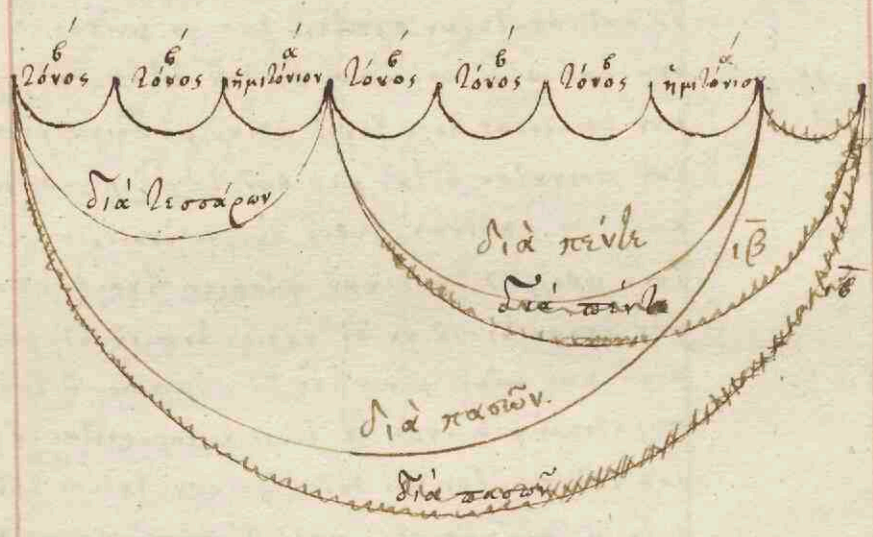 β́ β́ ά β́ β́ β́ ά
τόνος τόνος ἡμιτόνιον τόνος τόνος τόνος ἡμιτόνιον
διὰ τεσσάρων
διὰ πέντε
ιβ̅
διὰ πέντε
διὰ πασῶν.
διὰ πασῶν